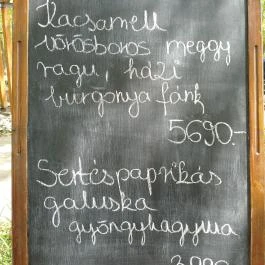 Kacsamell
vörösboros meggy
ragu, házi
burgonya fánk
5690.-
Sertéspaprikás
galuska
gyöngyhagyma